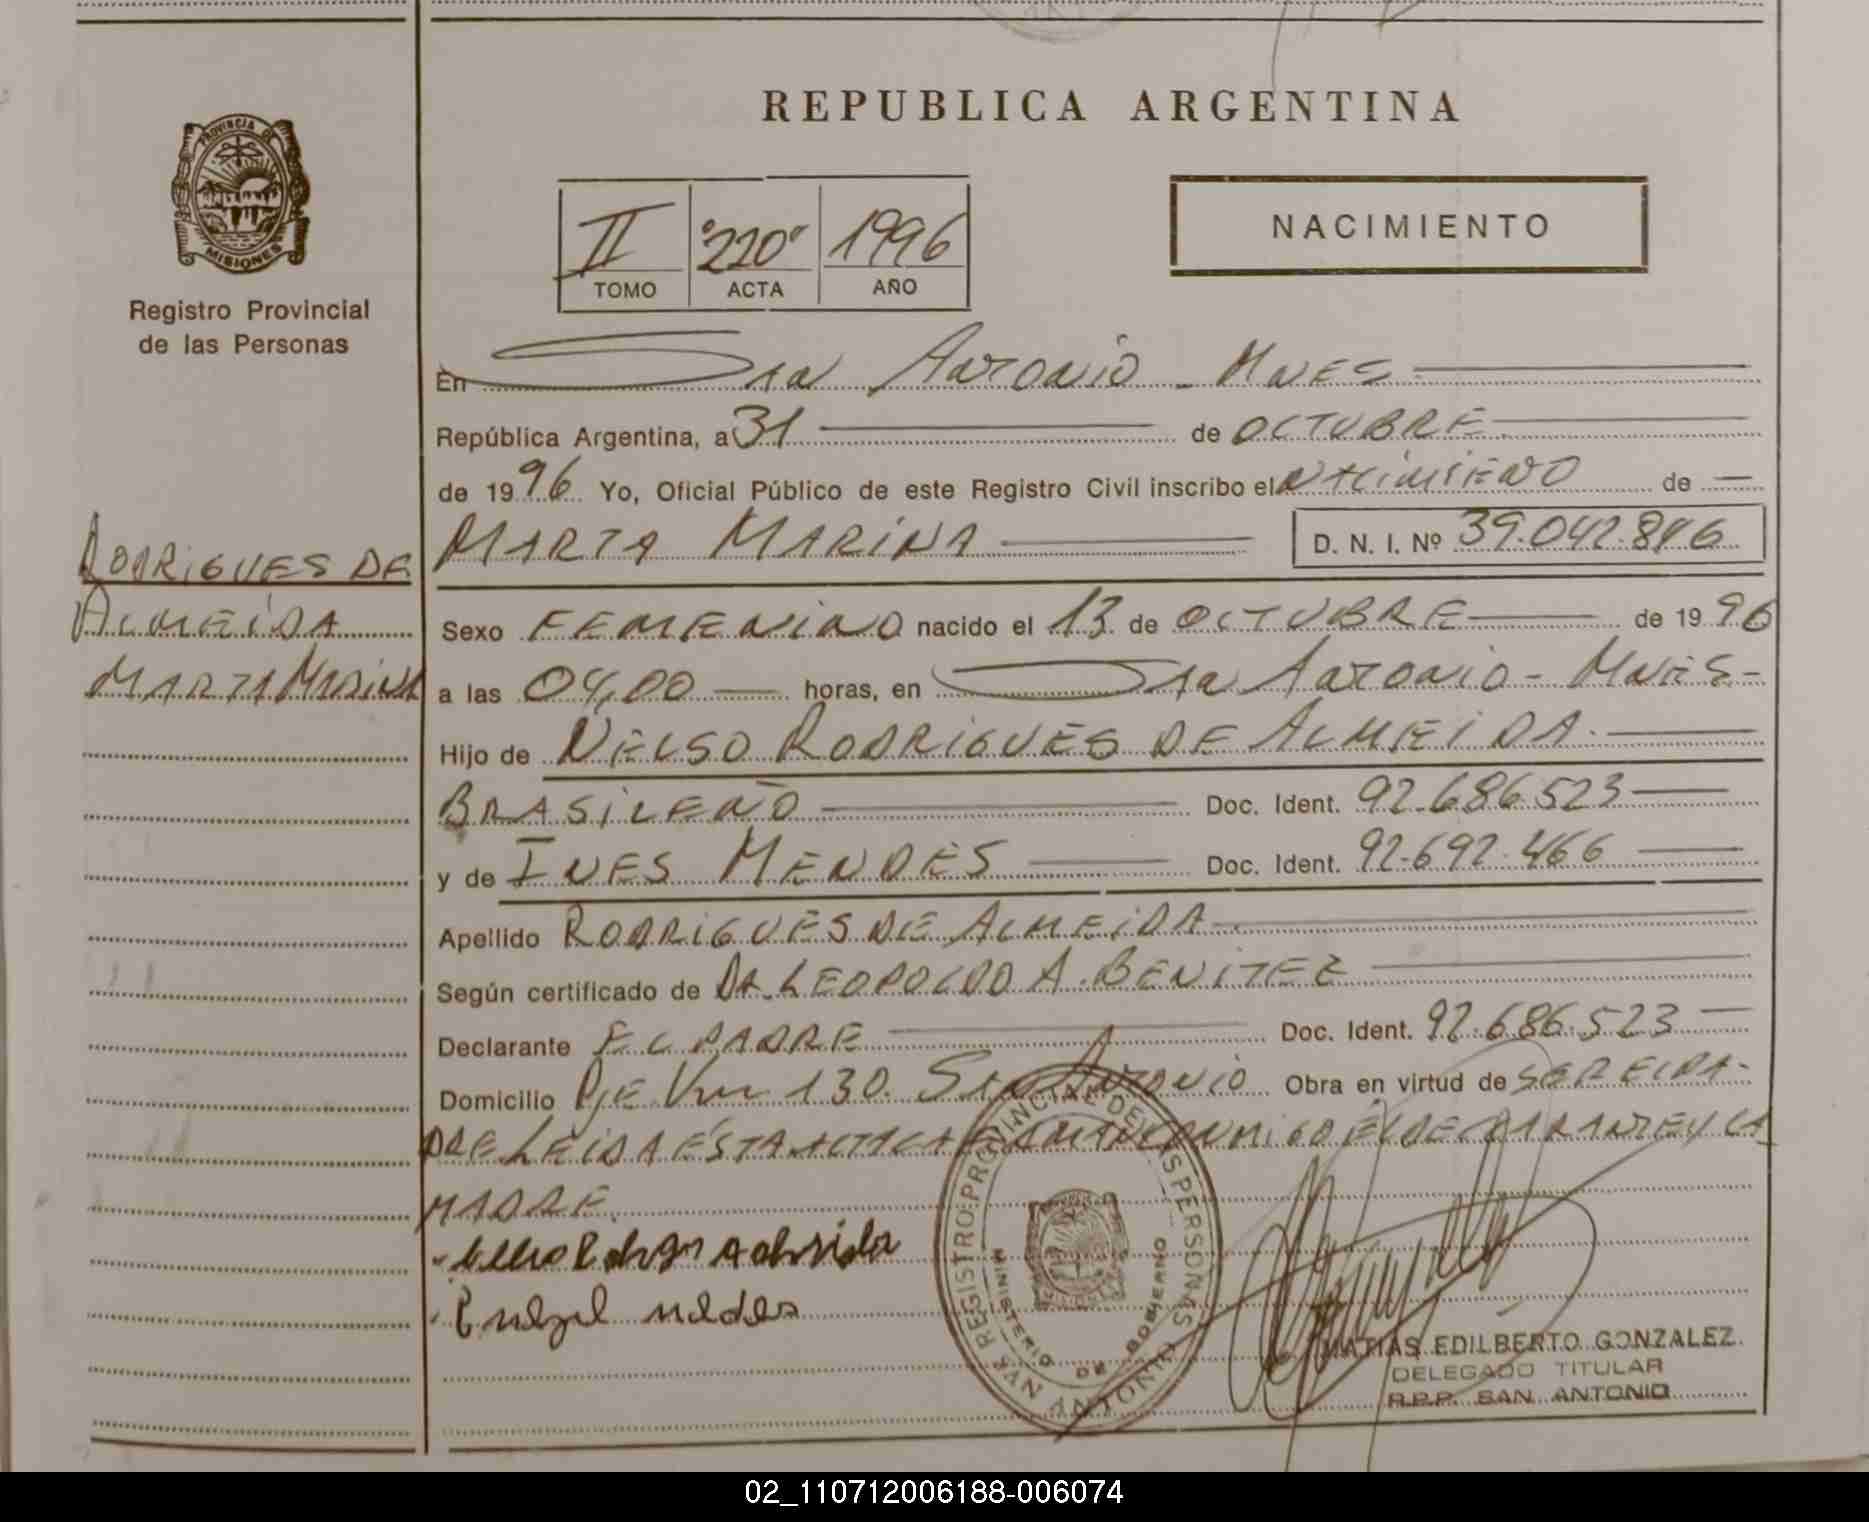 PROVINCIA DE
MISIONES
Registro Provincial
de las Personas
RODRIGUES DE
ALMEIDA
MARTA MARINA
REPUBLICA ARGENTINA
II "220" 1996
TOMO ACTA AÑO
NACIMIENTO
En San Antonio - Mnes
República Argentina, a 31 de OCTUBRE
de 1996 Yo, Oficial Público de este Registro Civil inscribo el NACIMIENTO de
MARTA MARINA D. N. I. Nº 39.042.846
Sexo FEMENINO nacido el 13 de OCTUBRE de 1996
a las 04,00 horas, en San Antonio - Mnes-
Hijo de NELSO RODRIGUES DE ALMEIDA.
BRASILEÑO Doc. Ident. 92.686.523
y de INES MENDES Doc. Ident. 92.692.466
Apellido RODRIGUES DE ALMEIDA
Según certificado de DR. LEOPOLDO A. BENITEZ
Declarante EL PADRE Doc. Ident. 92.686.523
Domicilio Pje 130. San Antonio Obra en virtud de SER EL PA-
DRE LEIDA ESTA ACTA LA FIRMAN CONMIGO EL DECLARANTE Y LA
MADRE.
REGISTRO PROVINCIAL DE LAS PERSONAS
MINISTERIO DE GOBIERNO
SAN ANTONIO
MATIAS EDILBERTO GONZALEZ
DELEGADO TITULAR
R.P.P. SAN ANTONIO
02_110712006188-006074